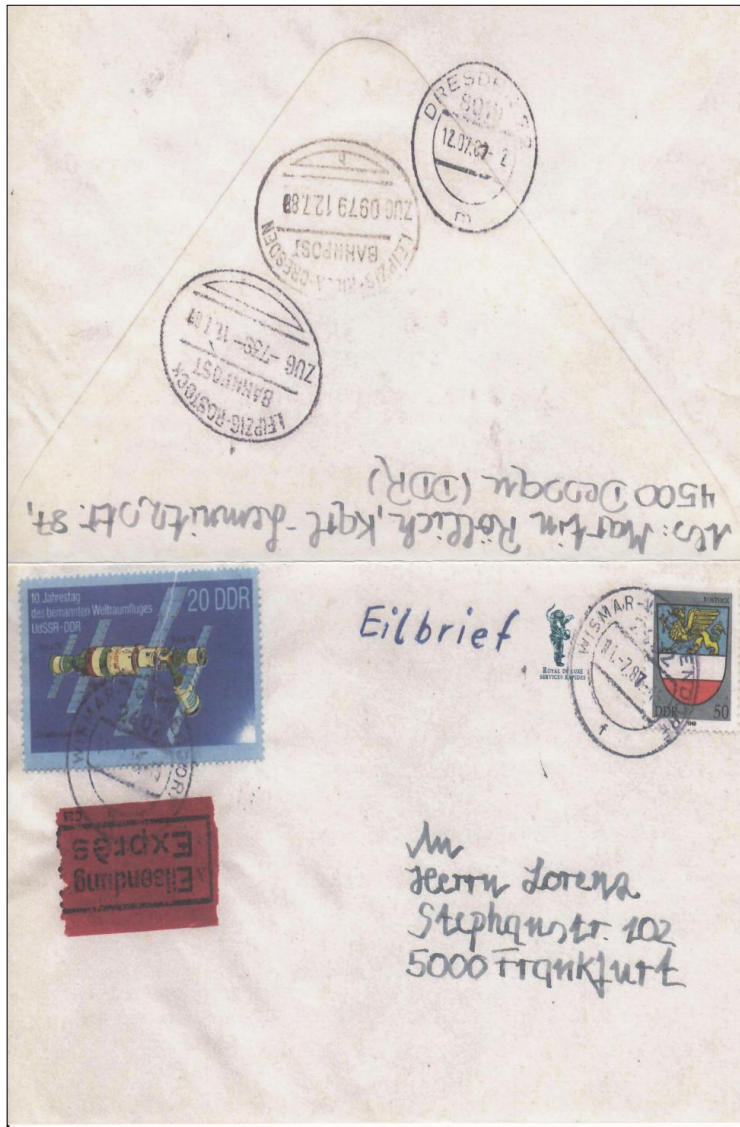 DRESDEN
8010
m
LEIPZIG
DRESDEN
BAHNPOST
ZUG 0979 12.7.
b
LEIPZIG-ROSTOCK
BAHNPOST
ZUG
Abs: Martin Röllich, Karl
4500 Dessau (DDR)
10. Jahrestag
des bemannten Weltraumfluges
UdSSR-DDR
20 DDR
Eilbrief
ROYAL DE LUXE
SERVICES RAPIDES
WISMAR
f
ROSTOCK
DDR 50
WISMAR
Eilsendung
Exprès
An
Herrn Lorenz
Stephanstr. 102
5000 Frankfurt